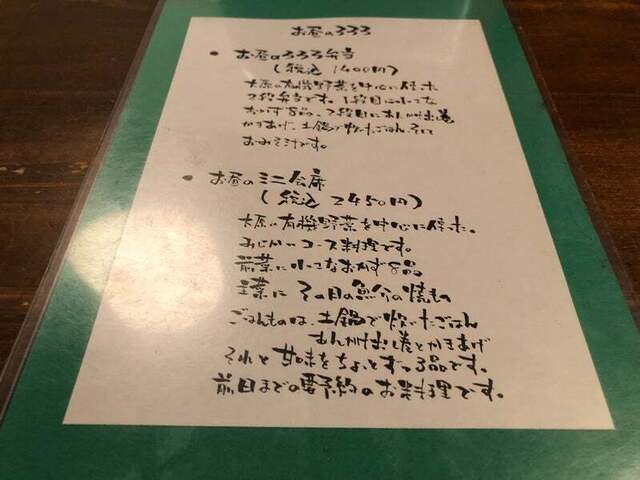 お昼のろろろ
・お昼のろろろ弁当
(税込 1400円)
大原の有機野菜を中心に使った
2段弁当です。1段目に小さな
おかず8品、2段目にあんかけお巻
かきあげ、土鍋で炊いたごはん、そして
おみそ汁です。
・お昼のミニ会席
(税込 2450円)
大原の有機野菜を中心に使った。
みじかいコース料理です。
前菜に小さなおかず8品
主菜にその日の魚介の焼もの
ごはんものは、土鍋で炊いたごはん
あんかけお巻とかきあげ
それと甘味をちょっとずつ3品です。
前日までの要予約のお料理です。